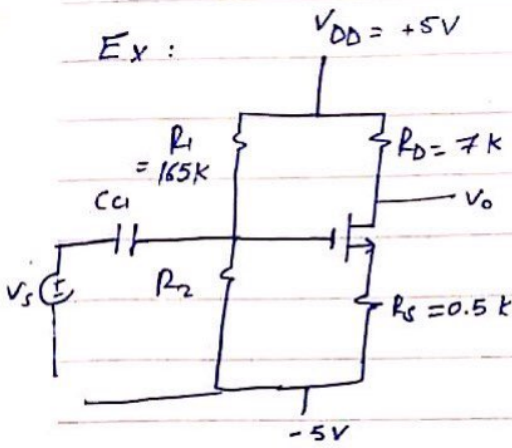 Ex :
VDD = +5V
R1
= 165K
RD = 7K
Cc1
Vo
Vs
R2
Rs = 0.5K
-5V